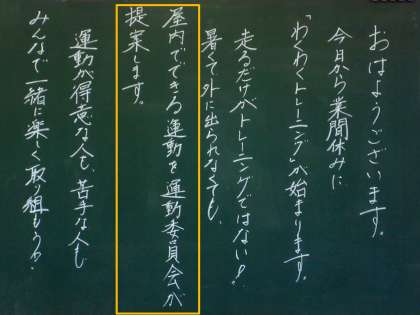 おはようございます。
今日から業間休みに
「わくわくトレーニング」が始まります。
走るだけがトレーニングではない！
暑くて外に出られなくても、
屋内でできる運動を運動委員会が
提案します。
運動が得意な人も、苦手な人も
みんなで一緒に楽しく取り組もうね。